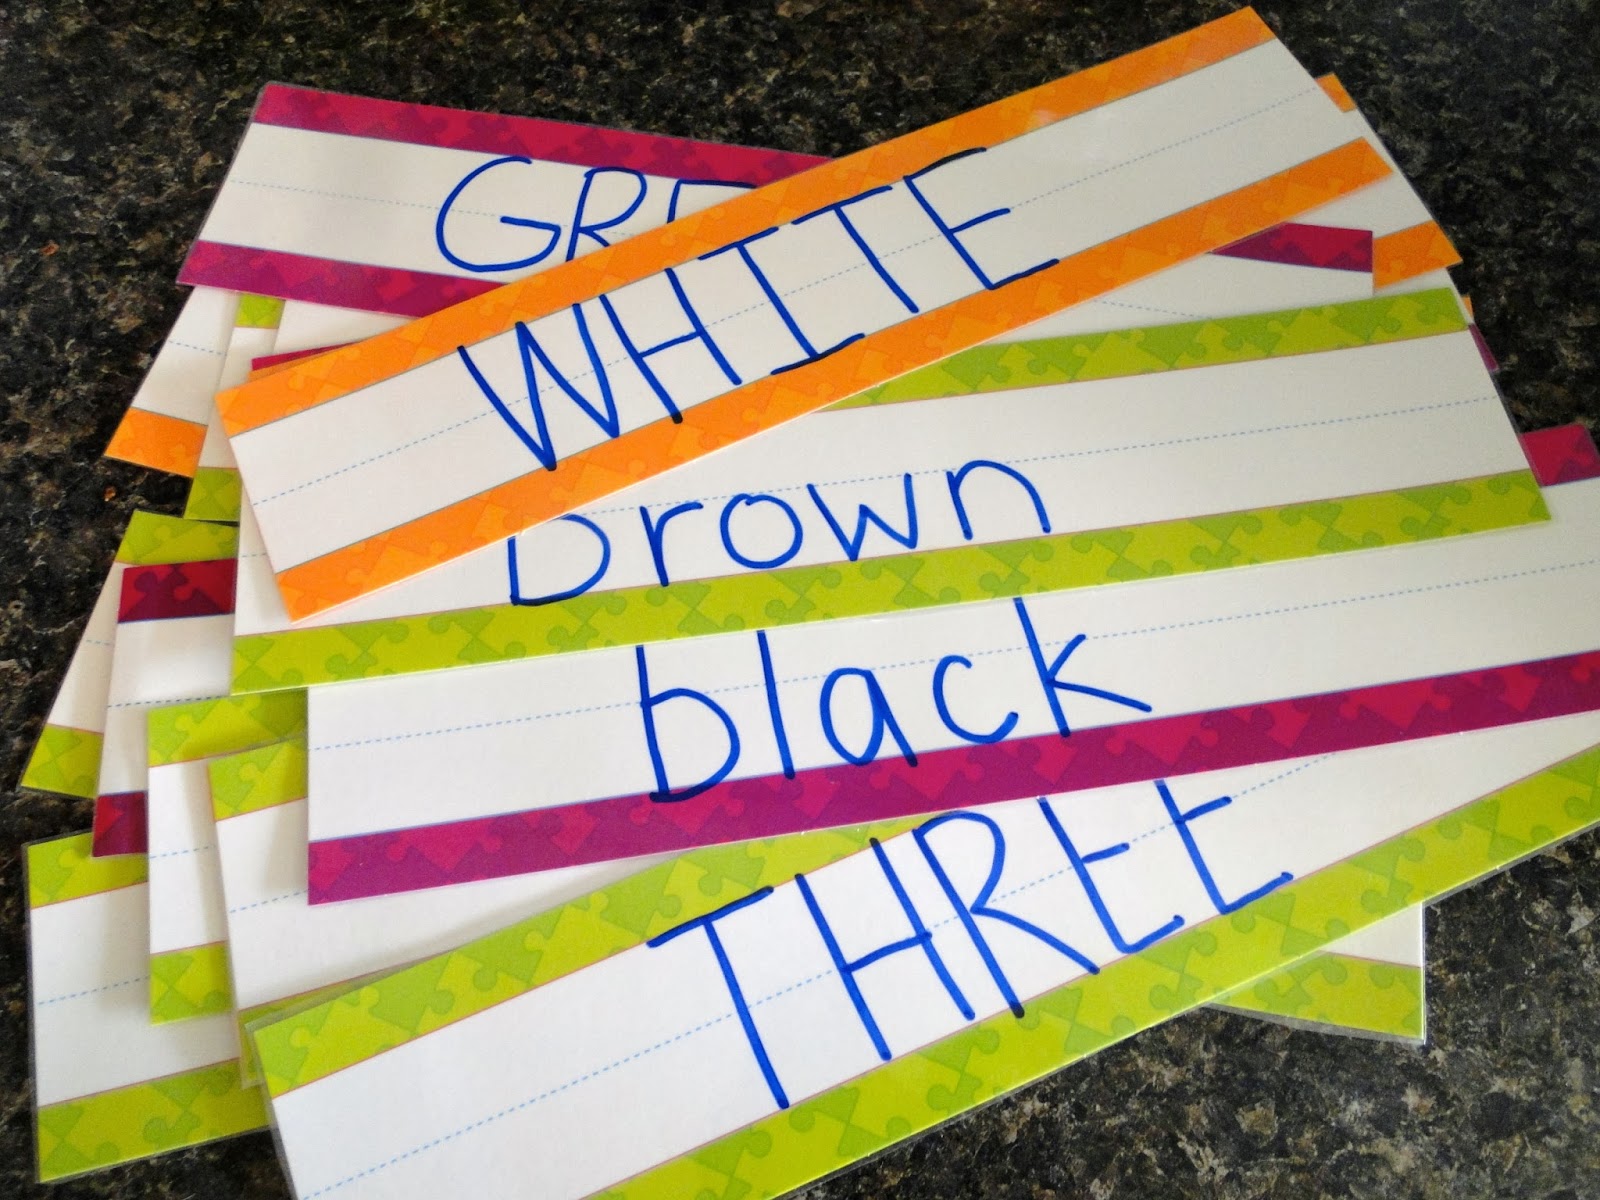 WHITE
brown
black
THREE